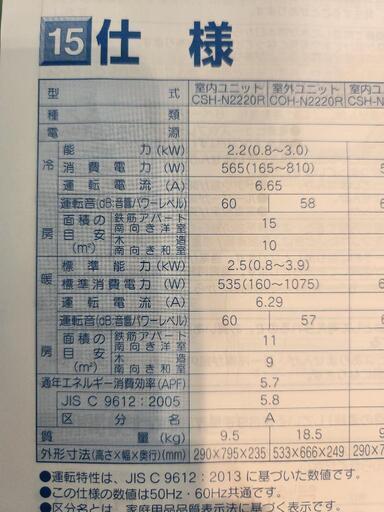 15 仕様
型式 室内ユニット CSH-N2220R 室外ユニット COH-N2220R 室内ユニ CSH-N2
種類
電源
冷房 能力(kW) 2.2(0.8〜3.0)
消費電力(W) 565(165〜810)
運転電流(A) 6.65
運転音(dB:音響パワーレベル) 60 58 6
面積の目安(m²) 鉄筋アパート南向き洋室 15
木造南向き和室 10
暖房 標準能力(kW) 2.5(0.8〜3.9)
標準消費電力(W) 535(160〜1075)
運転電流(A) 6.29
運転音(dB:音響パワーレベル) 60 57 6
面積の目安(m²) 鉄筋アパート南向き洋室 11
木造南向き和室 9
通年エネルギー消費効率(APF) 5.7
JIS C 9612:2005 5.8
区分名 A
質量(kg) 9.5 18.5
外形寸法(高さ×幅×奥行)(mm) 290×795×235 533×666×249 290×7
●運転特性は、JIS C 9612:2013 に基づいた数値です。
●この仕様の数値は50Hz・60Hz共通です。
●区分名とは、家庭用品品質表示法に基づく表示です。